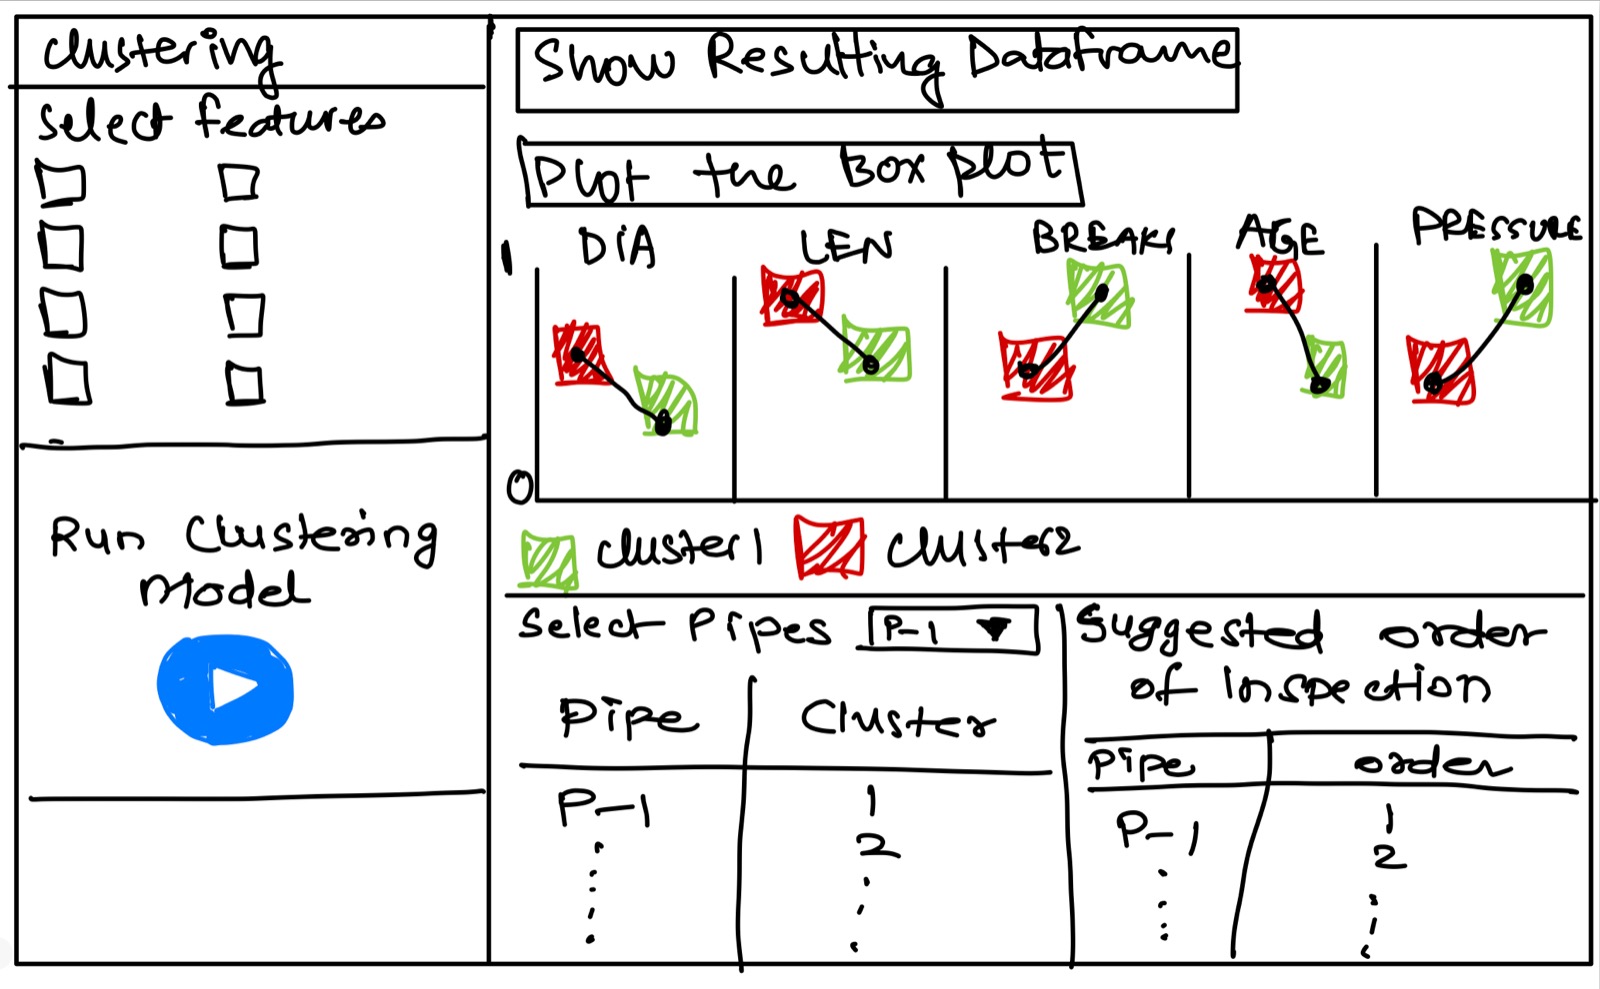 Clustering
Select features
Run Clustering
Model
Show Resulting Dataframe
Plot the Box plot
DIA LEN BREAKS AGE PRESSURE
1
0
cluster 1 cluster2
Select Pipes P-1
Pipe Cluster
P-1 1
2
Suggested order
of Inspection
Pipe order
P-1 1
2